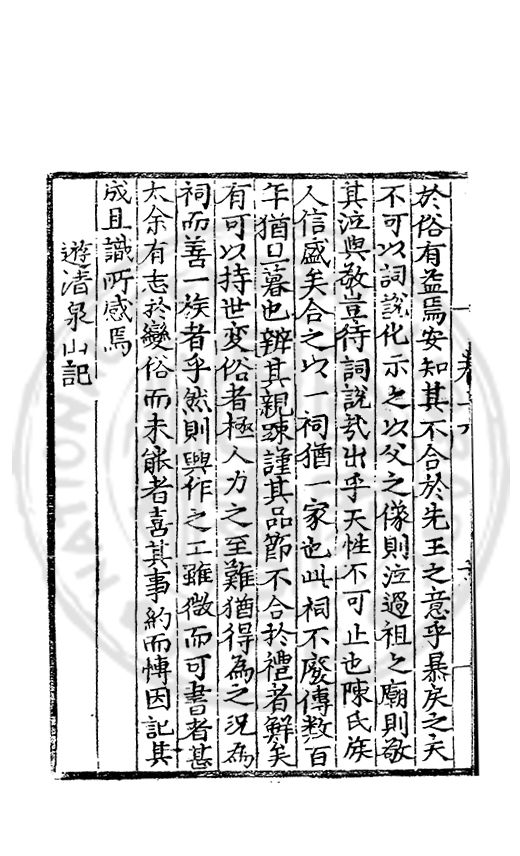 於俗有益焉安知其不合於先王之意乎暴戾之夫
不可以詞說化示之以父之像則泣過祖之廟則敬
其泣與敬豈待詞說哉出乎天性不可止也陳氏族
人信盛矣合之以一祠猶一家也此祠不廢傳数百
年猶旦暮也辨其親踈謹其品節不合於禮者鮮矣
有可以持世変俗者極人力之至難猶得為之況為
祠而善一族者乎然則興作之工雖微而可書者甚
大余有志於變俗而未能者喜其事約而愽因記其
成且識所感焉
遊清泉山記
NATIONAL